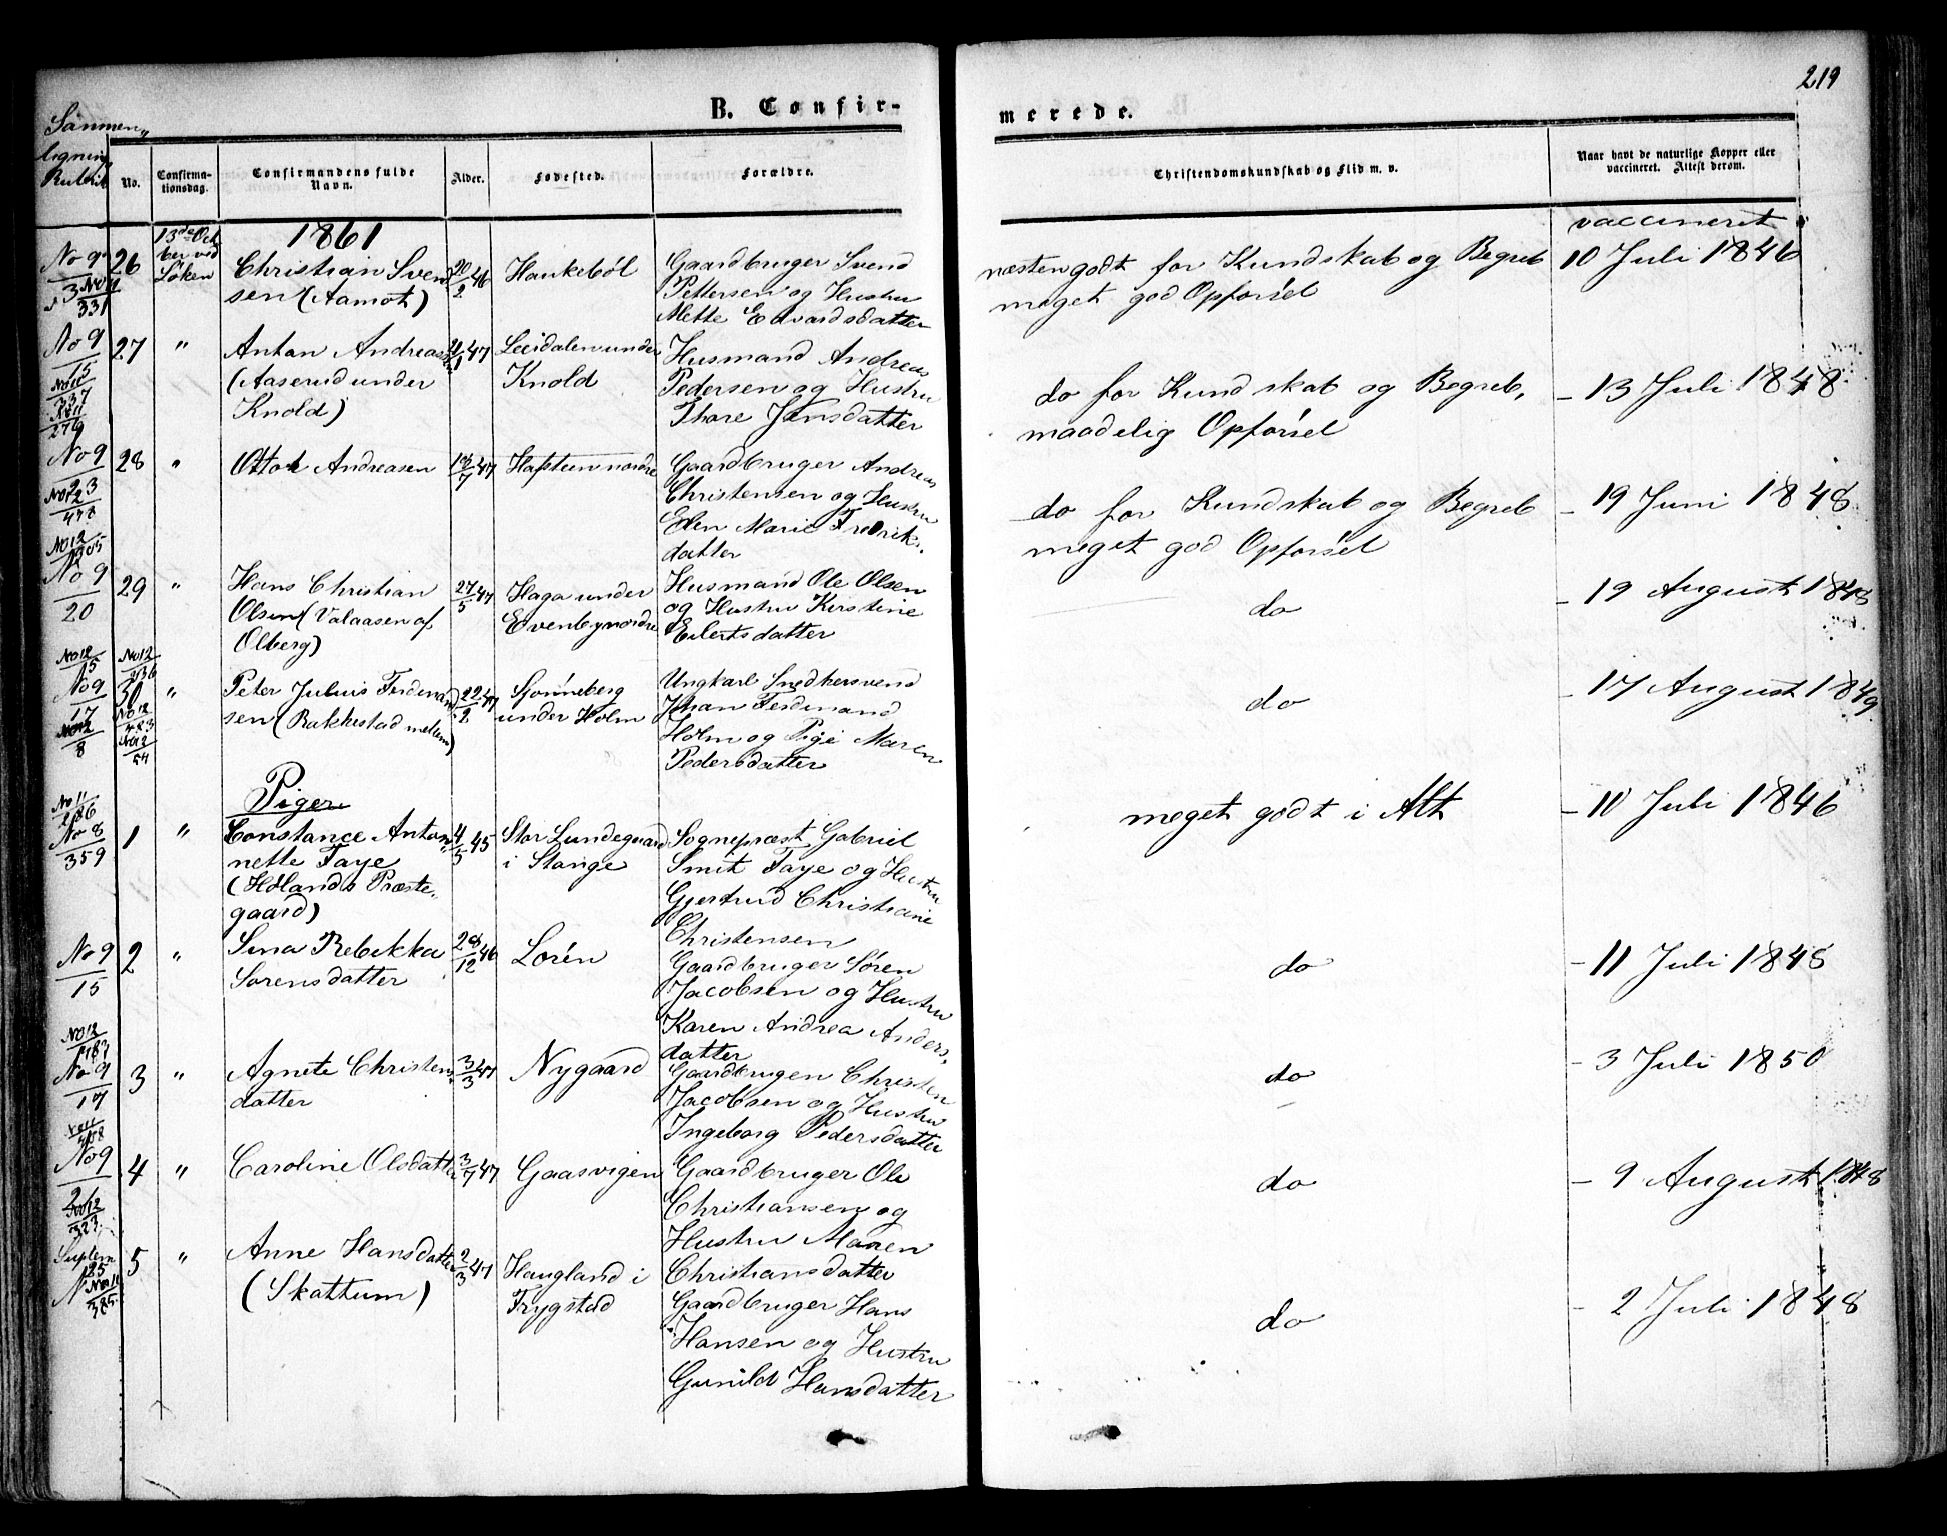 219
B. Confir-
merede.
Sammen„
lignings
Rubrik
No.
Confirma-
tionsdag.
Confirmandens fulde
Navn.
Alder.
Fødested.
Forældre.
Christendomskundskab og Flid m. v.
Naar havt de naturlige Kopper eller
vaccineret. Attest derom.
13de Octo
ber ved
Løken
1861
vaccineret
No 9
26
Christian Svend
sen (Aamot)
20/2 46
Haukeböl
Gaardbruger Svend
Pettersen og Hustru
Mette Edvardsdatter
næsten godt for Kundskab og Begreb
meget god Opførsel
10 Juli 1846
No 9
15
27 "
Antan Andreass
(Aaserud under
Knold)
21/1 47
Leirdalen under
Knold
Husmand Andreas
Pedersen og Hustru
Thore Jensdatter
do for Kundskab og Begreb,
maadelig Opførsel
- 13 Juli 1848
No 9
23
28 "
Otto Andreasen
13/7 47
Hafsteen nordre
Gaardbruger Andreas
Christensen og Hustru
Elen Marie Fredriks-
datter
do for Kundskab og Begreb
meget god Opførsel
- 19 Juni 1848
No 9
20
29 "
Hans Christian
Olsen (Valaasen af
Olberg)
27/5 47
Haga under
Evenby nordre
Husmand Ole Olsen
og Hustru Kirstine
Eilertsdatter
do
- 19 August 1848
No 9
17
30 "
Peter Julius Ferdinand
sen (Rakkestad mellem)
22/2 47
Sjonneberg
under Holm
Ungkarl Snedkersvend
Johan Ferdinand
Holm og Pige Maren
Pedersdatter
do
- 17 August 1849
Piger
No 8
359
1 "
Constance Anton
nette Faye
(Hölands Præste„
gaard)
4/5 45
Stor Lundegaard
i Stange
Sognepræst Gabriel
Smit Faye og Hustru
Gjertrud Christiane
Christensen
meget godt i Alt
- 10 Juli 1846
No 9
15
2 "
Sina Rebekka
Sorensdatter
28/12 46
Lorén
Gaardbruger Søren
Jacobsen og Hustru
Karen Andrea Anders-
datter
do
- 11 Juli 1848
No 9
17
3 "
Agnete Christens
datter
3/3 47
Nygaard
Gaardbrugen Christen
Jacobsen og Hustru
Ingeborg Pedersdatter
do
- 3 Juli 1850
No 9
4 "
Caroline Olsdatter
3/7 47
Gaasvigen
Gaardbruger Ole
Christiansen og
Hustru Maren
Christiansdatter
do
- 9 August 1848
Suplem
25
5 "
Anne Hansdatter
(Skattum)
2/3 47
Haugland i
Trygstad
Gaardbruger Hans
Hansen og Hustru
Gunild Hansdatter
do
- 2 Juli 1848